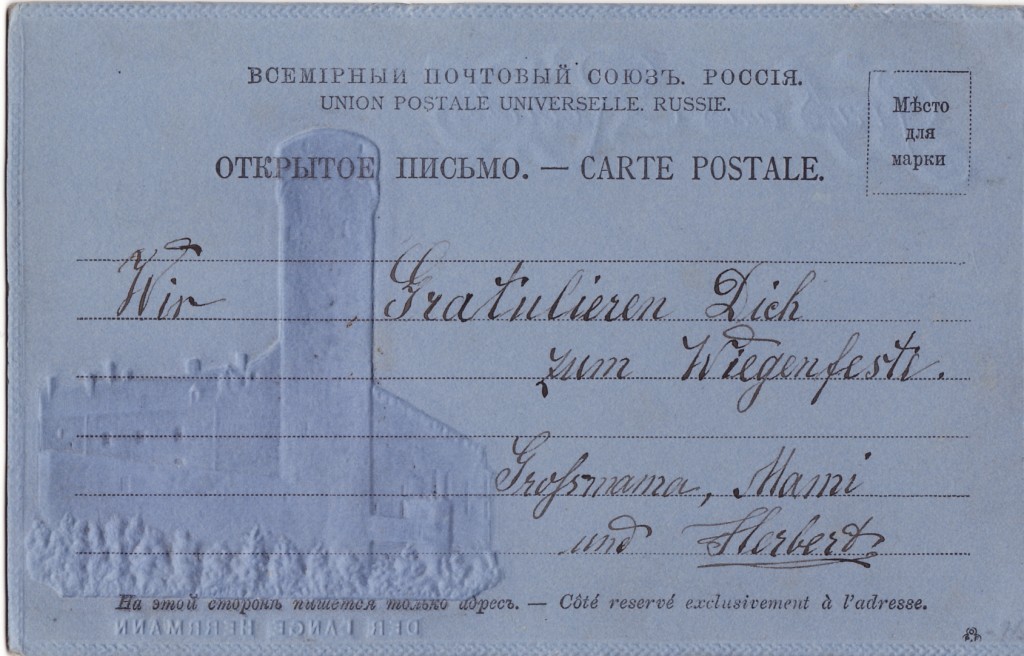 ВСЕМІРНЫЙ ПОЧТОВЫЙ СОЮЗЪ. РОССІЯ.
UNION POSTALE UNIVERSELLE. RUSSIE.
Мѣсто
для
марки
ОТКРЫТОЕ ПИСЬМО. — CARTE POSTALE.
Wir Gratulieren Dich
zum Wiegenfeste.
Grossmama, Mami
und Herbert
На этой сторонѣ пишется только адресъ. — Côté reservé exclusivement à l'adresse.
DER LANGE HERRMANN